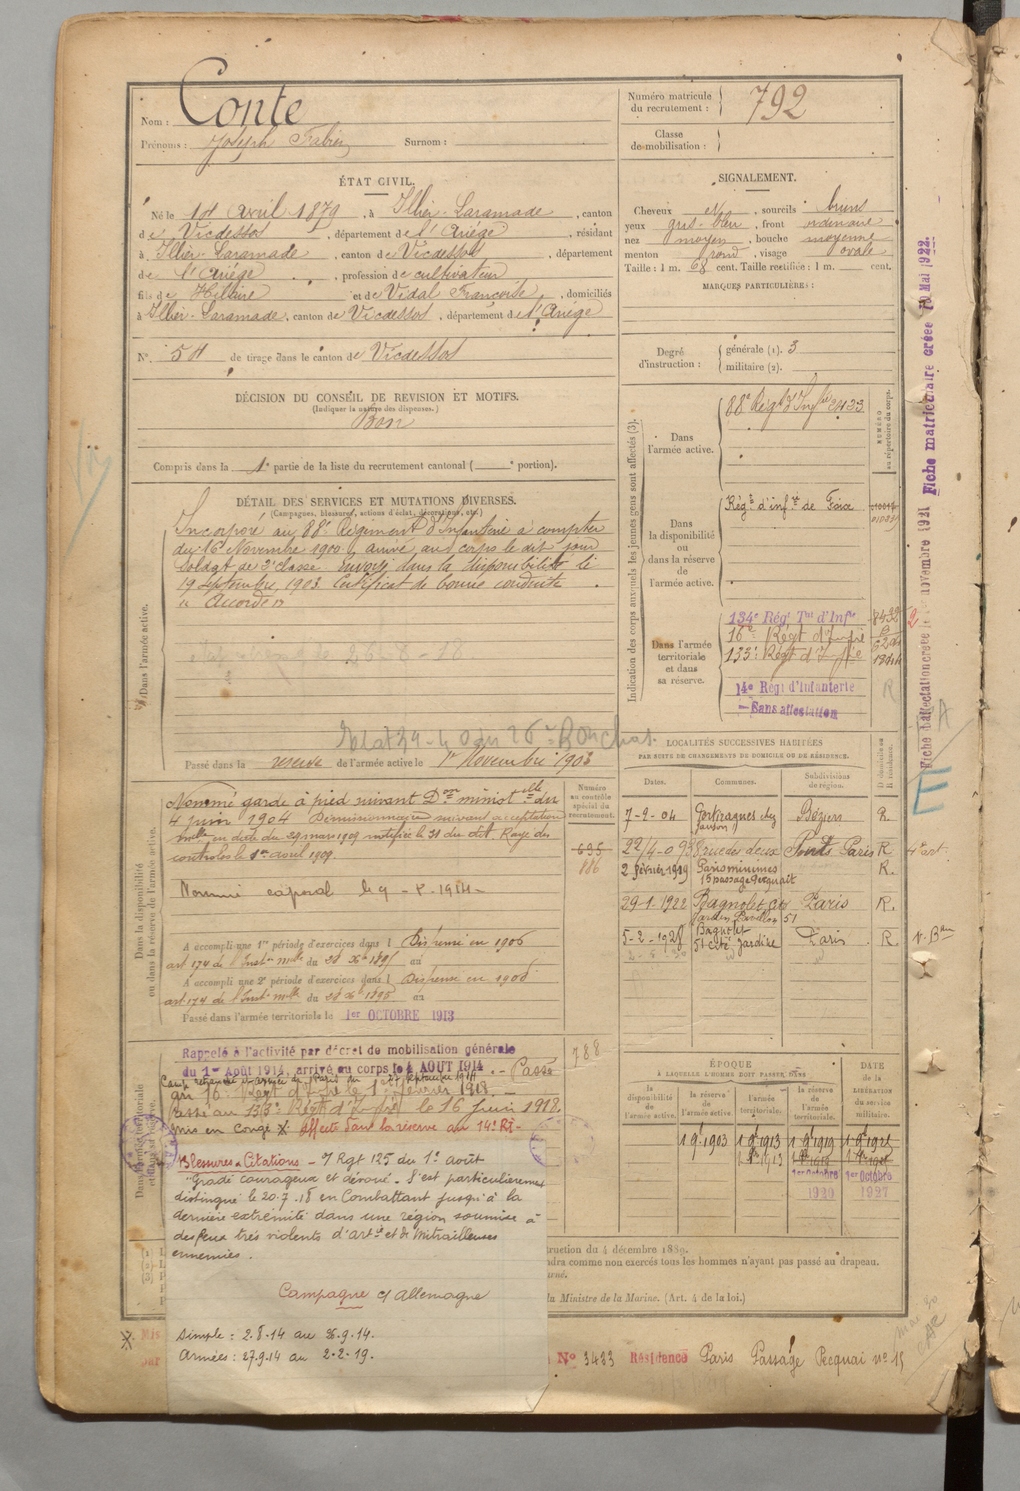 Nom : Conte
Prénoms : Joseph Fabien Surnom :
Numéro matricule du recrutement : 792
Classe de mobilisation :
ÉTAT CIVIL.
Né le 1er Avril 1879, à Illier-Laramade, canton
de Vicdessos, département de l'Ariège, résidant
à Illier-Laramade, canton de Vicdessos, département
de l'Ariège, profession de cultivateur
fils de Hillaire et de Vidal Françoise, domiciliés
à Illier-Laramade, canton de Vicdessos, département de l'Ariège
N° 51 de tirage dans le canton de Vicdessos
SIGNALEMENT.
Cheveux et, sourcils bruns
yeux gris-bleu, front ordinaire
nez moyen, bouche moyenne
menton rond, visage ovale
Taille : 1 m. 68 cent. Taille rectifiée : 1 m. cent.
MARQUES PARTICULIÈRES :
Degré d'instruction : générale (1). 3
militaire (2).
DÉCISION DU CONSEIL DE REVISION ET MOTIFS.
(Indiquer la nature des dispenses.)
Bon
Compris dans la 1e partie de la liste du recrutement cantonal ( e portion).
DÉTAIL DES SERVICES ET MUTATIONS DIVERSES.
(Campagnes, blessures, actions d'éclat, décorations, etc.)
Dans l'armée active.
Incorporé au 88e Régiment d'Infanterie à compter
du 16 Novembre 1900, arrivé au corps le dit jour
Soldat de 2e classe. Envoyé dans la disponibilité le
19 Septembre 1903. Certificat de bonne conduite
"Accordé"
Passé dans la réserve de l'armée active le 1er Novembre 1903
Indication des corps auxquels les jeunes gens sont affectés (3).
NUMÉRO au répertoire du corps.
Dans l'armée active.
88e Régt d'Infie 2433
Dans la disponibilité ou dans la réserve de l'armée active.
Régt d'infie de Foix
Dans l'armée territoriale et dans sa réserve.
134e Régt Tal d'Infie
16e Régt d'Infie
133e Régt d'Infie
14e Régt d'Infanterie
Sans affectation
Fiche matriculaire créée 10 Mai 1922.
Dans la disponibilité ou dans la réserve de l'armée active.
Numéro au contrôle spécial du recrutement.
Nommé garde à pied suivant Don ministelle du
4 juin 1904 Démissionnaire suivant acceptation
mlle en date du 29 mars 1909 notifiée le 31 du dit. Rayé des
contrôles le 1er avril 1909.
695
886
Nommé caporal le 9-8-1914
A accompli une 1re période d'exercices dans l Dispensé en 1906
art 174 de l'Inst. mlle du 28 Xbre 1895 au
A accompli une 2e période d'exercices dans l Dispensé en 1908
art 174 de l'Inst mlle du 28 Xbre 1895 au
Passé dans l'armée territoriale le 1er OCTOBRE 1913
LOCALITÉS SUCCESSIVES HABITÉES
PAR SUITE DE CHANGEMENTS DE DOMICILE OU DE RÉSIDENCE.
Dates. Communes. Subdivisions de région. D domicile ou R résidence.
7-9-04 Portiragnes Béziers R.
22/4-09 8 rue des deux Ponts Paris R
2 février 1919 Paris minimes R.
15 passage Pecquait
29-1-1922 Bagnolet Paris R.
5-2-1928 Bagnolet Paris R
51 cité Jardins
788
Rappelé à l'activité par décret de mobilisation générale
du 1er Août 1914, arrivé au corps le 4 AOUT 1914. - Passé
au 16e Régt d'Infie le 1er février 1918.
Passé au 133e Régt d'Infie le 16 juin 1918.
Mis en Congé X. Affecté dans la réserve au 14e RI-
Blessures - Citations - 7 Rgt 125 du 1er août
"Gradé courageux et dévoué. S'est particulièrement
distingué le 20.7.18 en Combattant jusqu'à la
dernière extrémité dans une région soumise à
des feux très violents d'artie et de mitrailleuses
ennemies.
Campagne c/ Allemagne
Simple : 2.8.14 au 26.9.14.
Armées : 27.9.14 au 2-2-19.
ÉPOQUE
À LAQUELLE L'HOMME DOIT PASSER DANS
la disponibilité de l'armée active. la réserve de l'armée active. l'armée territoriale. la réserve de l'armée territoriale.
DATE de la LIBÉRATION du service militaire.
1 9bre 1903 1 9bre 1913 1 9bre 1919
1er Octobre 1920
1er Octobre 1927
truction du 4 décembre 1889.
ndra comme non exercés tous les hommes n'ayant pas passé au drapeau.
la Ministre de la Marine. (Art. 4 de la loi.)
N° 3433 Résidence Paris Passage Pecquai n° 15